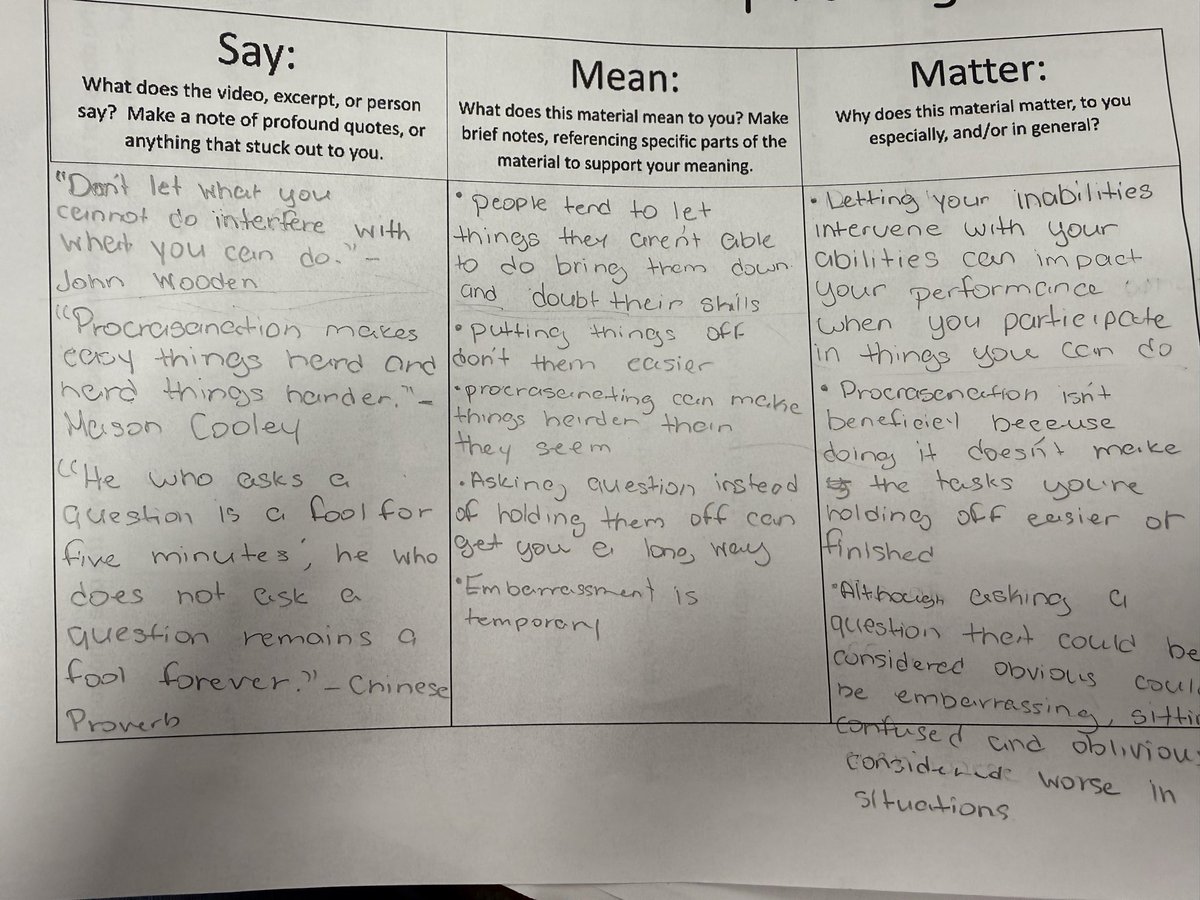 Say:
What does the video, excerpt, or person
say? Make a note of profound quotes, or
anything that stuck out to you.
"Don't let what you
cannot do interfere with
what you can do." -
John Wooden
"Procrasanation makes
easy things hard and
hard things harder." -
Mason Cooley
"He who asks a
question is a fool for
five minutes, he who
does not ask a
question remains a
fool forever." - Chinese
Proverb
Mean:
What does this material mean to you? Make
brief notes, referencing specific parts of the
material to support your meaning.
• people tend to let
things they aren't able
to do bring them down
and doubt their skills
• putting things off
don't them easier
• procrasanating can make
things harder than
they seem
• Asking question instead
of holding them off can
get you a long way
• Embarrassment is
temporary
Matter:
Why does this material matter, to you
especially, and/or in general?
• Letting your inabilities
intervene with your
abilities can impact
your performance
when you participate
in things you can do
• Procrasenation isn't
beneficial because
doing it doesn't make
the tasks you're
holding off easier or
finished
• Although asking a
question that could be
considered obvious coul
be embarrassing, sitti
confused and obliviou
considered worse in
situations